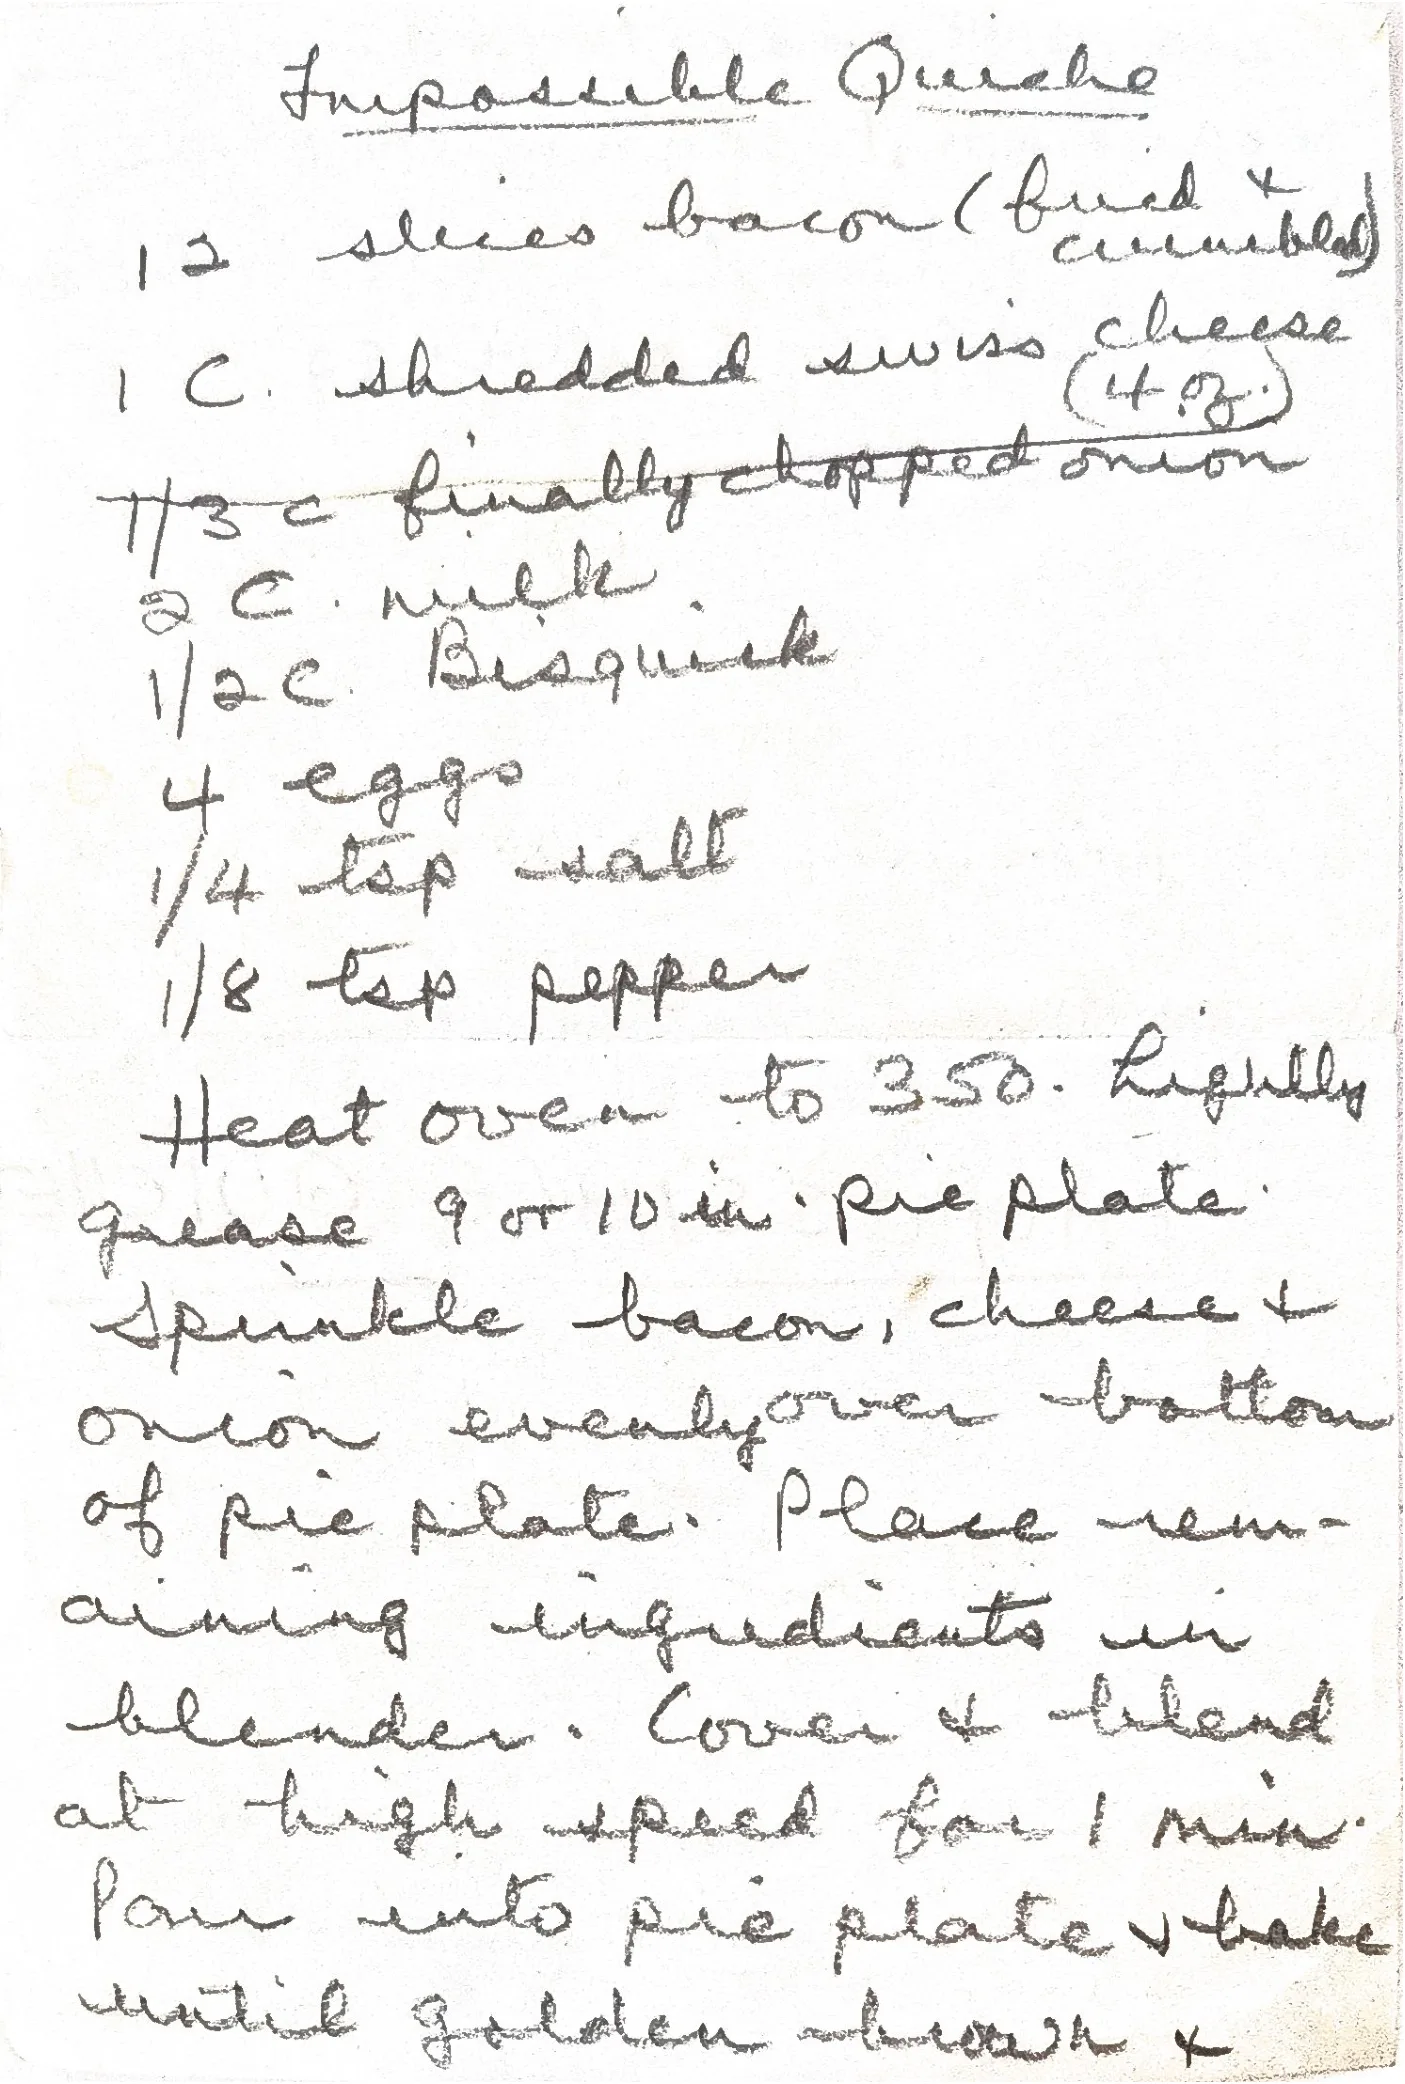 Impossible Quiche
12 slices bacon (fried &
crumbled)
1 C. shredded swiss cheese
(4 oz.)
1/3 c finally chopped onion
2 C. milk
1/2 C. Bisquick
4 eggs
1/4 tsp salt
1/8 tsp pepper
Heat oven to 350. Lightly
grease 9 or 10 in. pie plate.
Sprinkle bacon, cheese &
onion evenly over bottom
of pie plate. Place rem-
aining ingredients in
blender. Cover & blend
at high speed for 1 min.
Pour into pie plate & bake
until golden brown &